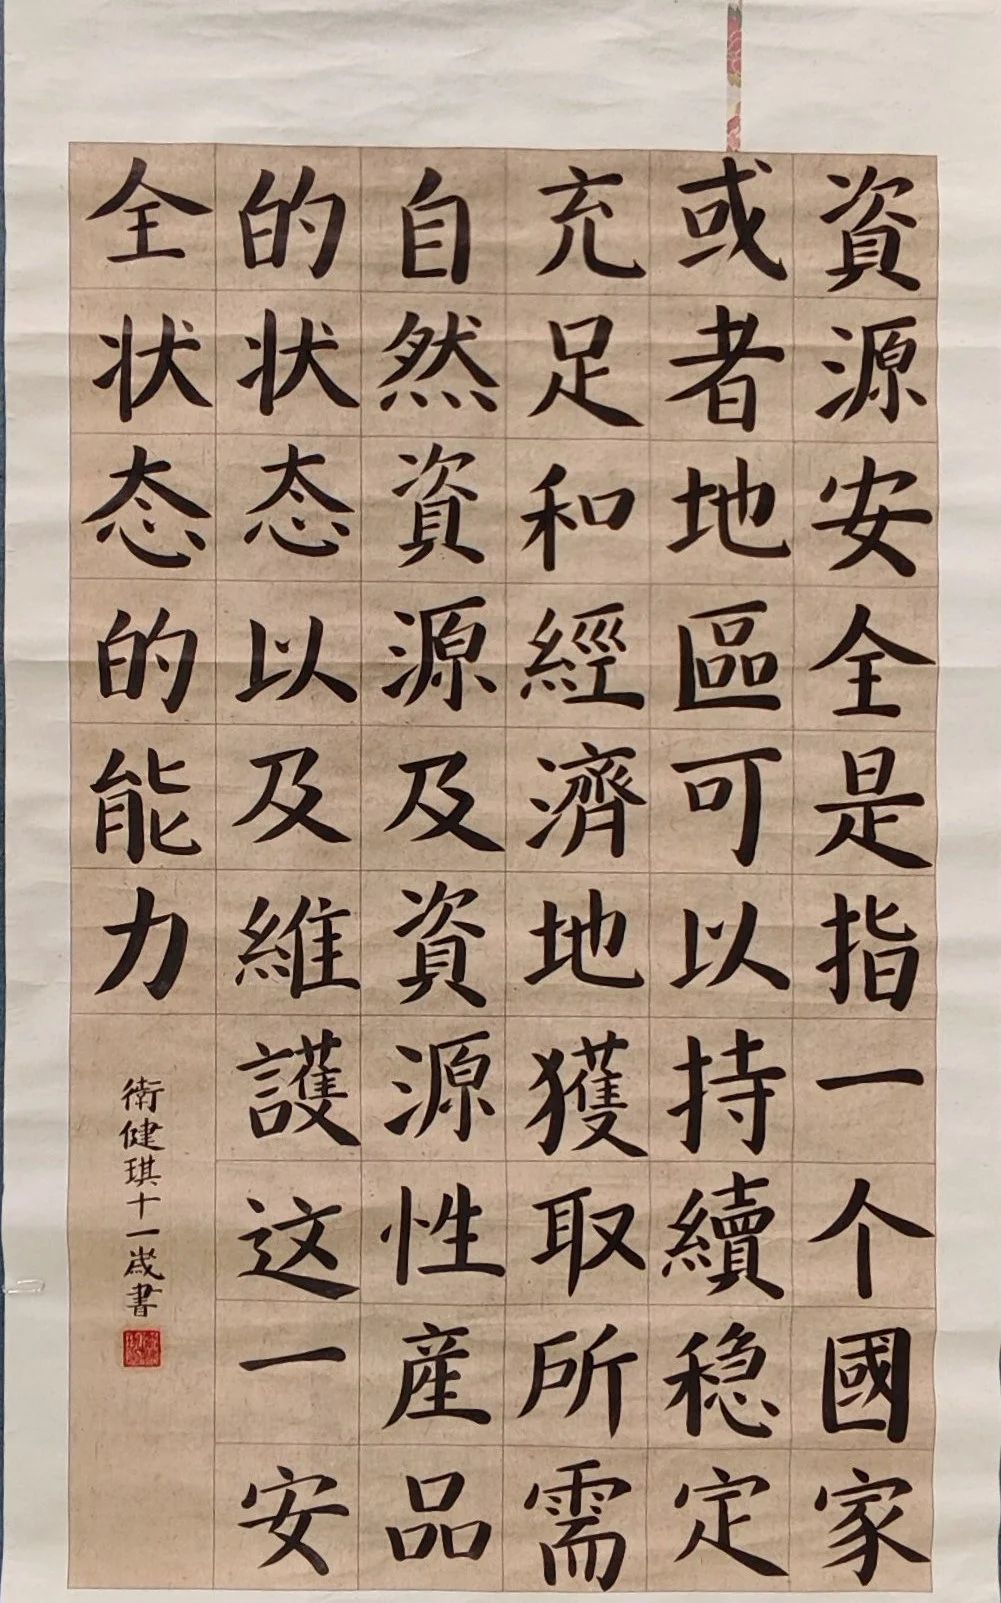 資源安全是指一个國家
或者地區可以持續稳定
充足和經濟地獲取所需
自然資源及資源性産品
的状态以及維護这一安
全状态的能力
衛健琪十一歲書